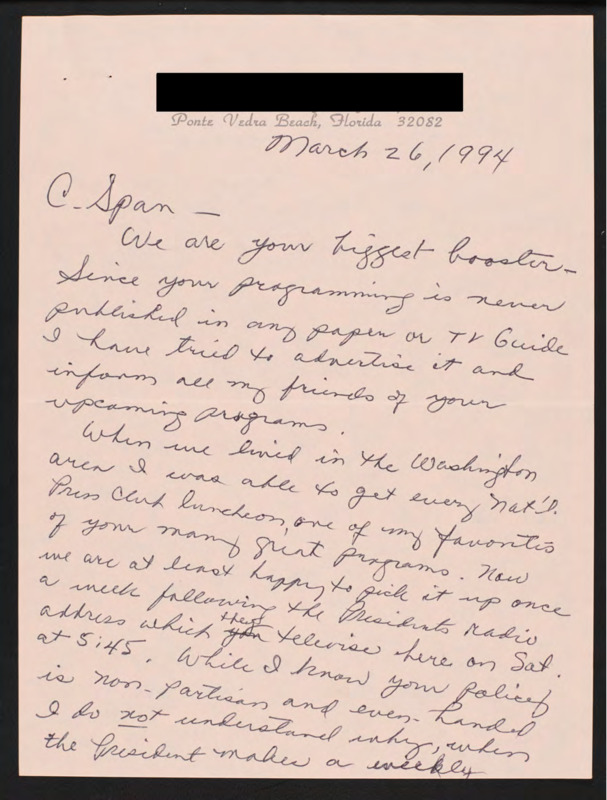 Ponte Vedra Beach, Florida 32082
March 26, 1994
C-Span —
We are your biggest booster-
Since your programming is never
published in any paper or TV Guide
I have tried to advertise it and
inform all my friends of your
upcoming programs.
When we lived in the Washington
area I was able to get every Nat'l.
Press Club luncheon, one of my favorites
of your many great programs. Now
we are at least happy to pick it up once
a week following the Presidents radio
address which they televise here on Sat.
at 5:45. While I know your policy
is non-partisan and even-handed
I do not understand why, when
the President makes a weekly